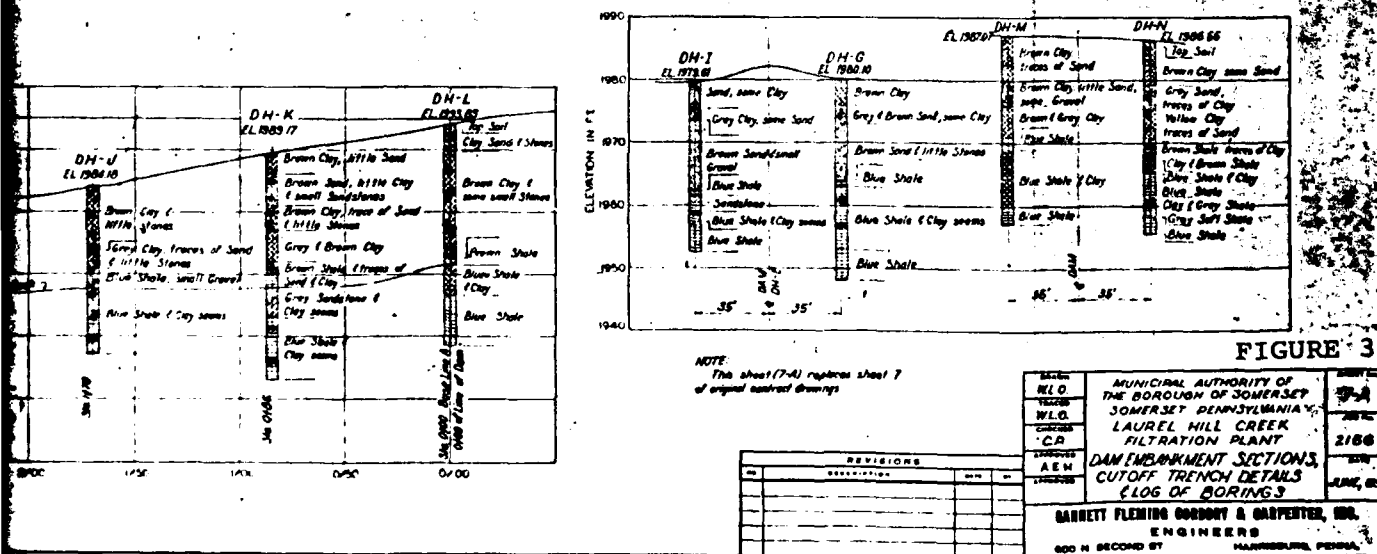 DH-J
EL 1984.18
Brown Clay &
little stones
Grey Clay, traces of Sand
& little Stones
Blue Shale, small Gravel
Blue Shale & Clay seams
Sta 1+70
DH-K
EL 1989.17
Brown Clay, little Sand
Brown Sand, little Clay
& small Sandstones
Brown Clay, trace of Sand
& little Stones
Grey & Brown Clay
Brown Shale & traces of
Sand & Clay
Grey Sandstone &
Clay seams
Blue Shale &
Clay seams
Sta 0+86
DH-L
Top Soil
Clay Sand & Stones
Brown Clay &
some small Stones
Brown Shale
Blue Shale
& Clay
Blue Shale
Sta. 0+00 Base Line A
0+00 of Line of Dam
2+00
1+50
1+00
0+50
0+00
ELEVATION IN FT
1990
1980
1970
1960
1950
1940
DH-I
EL 1979.61
Sand, some Clay
Grey Clay, some Sand
Brown Sand & small
Gravel
Blue Shale
Sandstone
Blue Shale & Clay seams
Blue Shale
35'
DAM
35'
DH-G
EL 1980.10
Brown Clay
Grey & Brown Sand, some Clay
Brown Sand & little Stones
Blue Shale
Blue Shale & Clay seams
Blue Shale
DH-M
EL 1987.07
Brown Clay
traces of Sand
Brown Clay, little Sand,
Gravel
Brown & Grey Clay
Blue Shale
Blue Shale & Clay
Blue Shale
35'
DAM
35'
DH-N
EL 1986.66
Top Soil
Brown Clay some Sand
Grey Sand,
traces of Clay
Yellow Clay
traces of Sand
Brown Shale traces of Clay
Clay & Brown Shale
Blue Shale & Clay
Blue Shale
Clay & Grey Shale
Grey Soft Shale
Blue Shale
NOTE
This sheet (7-A) replaces sheet 7
of original contract drawings
FIGURE 3
REVISIONS
NO
DESCRIPTION
DATE
BY
DRAWN
W.L.O.
TRACED
W.L.O.
CHECKED
C.P.
APPROVED
AEH
APPROVED
MUNICIPAL AUTHORITY OF
THE BOROUGH OF SOMERSET
SOMERSET PENNSYLVANIA
LAUREL HILL CREEK
FILTRATION PLANT
DAM EMBANKMENT SECTIONS,
CUTOFF TRENCH DETAILS
& LOG OF BORINGS
7-A
2166
DATE
JUNE,
GANNETT FLEMING CORDDRY & CARPENTER, INC.
ENGINEERS
600 N SECOND ST
HARRISBURG, PENNA.